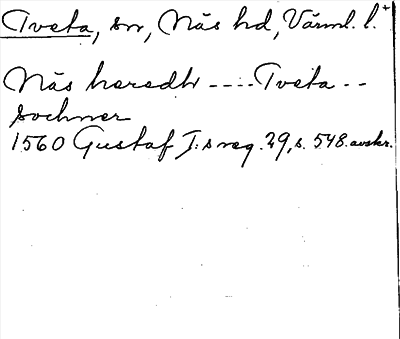 Tveta, sn, Näs hd, Värml. l.+
Näs heredh ---- Tveta --
sochner
1560 Gustaf I:s reg. 29, s. 548. avskr.